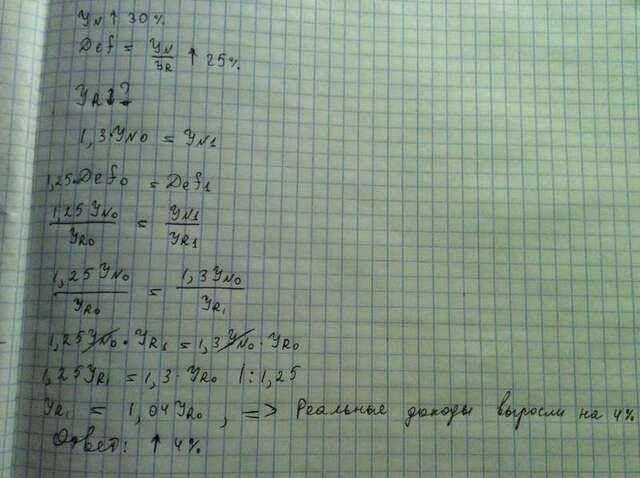 YN ↑ 30%.
Def = YN/YR ↑ 25%.
YR↕?
1,3·YN0 = YN1
1,25·Def0 = Def1
1,25YN0/YR0 = YN1/YR1
1,25YN0/YR0 = 1,3YN0/YR1
1,25YN0·YR1 = 1,3YN0·YR0
1,25YR1 = 1,3·YR0 |:1,25
YR1 = 1,04YR0, => Реальные доходы выросли на 4%
Ответ: ↑ 4%.